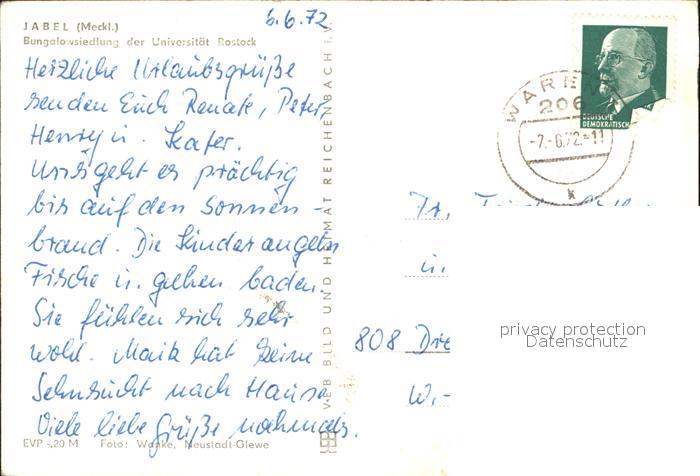 6.6.72
JABEL (Meckl.)
Bungalowsiedlung der Universität Rostock
Herzliche Urlaubsgrüße
senden Euch Renate, Peter,
Henry u. Kater.
Uns geht es prächtig
bis auf den Sonnen-
brand. Die Kinder angeln
Fische u. gehen baden.
Sie fühlen sich sehr
wohl. Maik hat keine
Sehnsucht nach Hause
Viele liebe Grüße nochmals.
EVP -,20 M Foto: Wanke, Neustadt-Glewe
VEB BILD UND HEIMAT REICHENBACH i.V.
DEUTSCHE
DEMOKRATISCH
WAREN
206
-7.-6.72.-11
k
Fr.
u.
808 Dre
W.-
privacy protection
Datenschutz